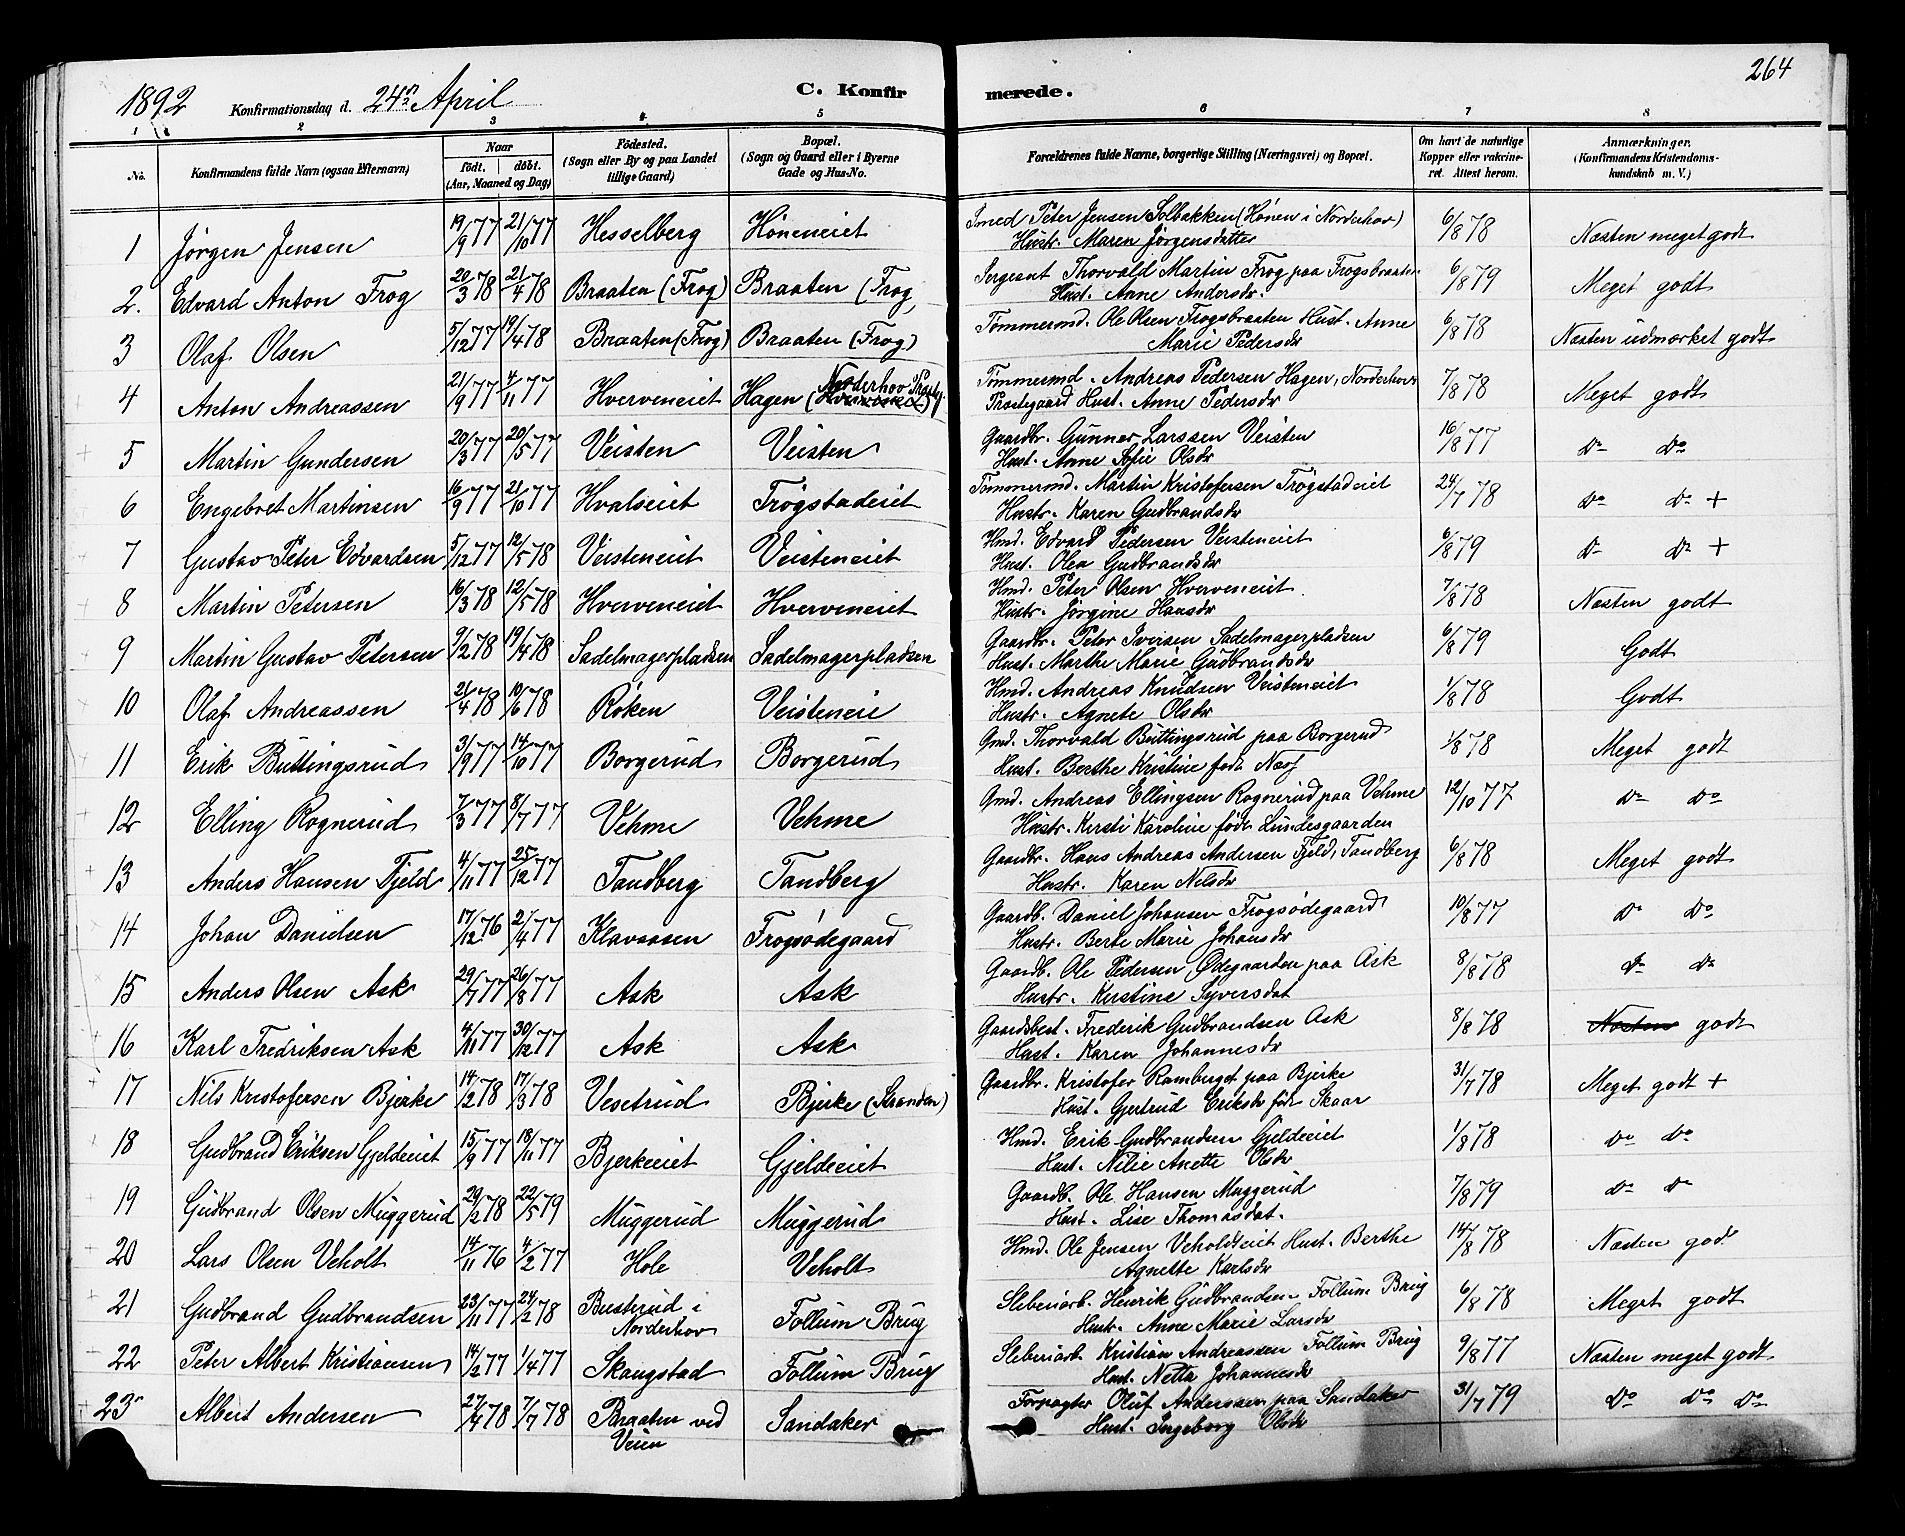 264
1892 Konfirmationsdag d. 24de April C. Konfirmerede.
1 2 3 4 5 6 7 8
No. Konfirmandens fulde Navn (ogsaa Efternavn) Naar født. døbt. (Aar, Maaned og Dag) Fødested. (Sogn eller By og paa Landet tillige Gaard) Bopæl. (Sogn og Gaard eller i Byerne Gade og Hus-No. Forældrenes fulde Navne, borgerlige Stilling (Næringsvei) og Bopæl. Om havt de naturlige Kopper eller vakcineret. Attest herom. Anmærkninger. (Konfirmandens Kristendomskundskab m. V.)
1 Jørgen Jensen 19/9 77 21/10 77 Hesselberg Høneneiet Smed Peter Jensen Solbakken (Hønen i Norderhov) 6/8 78 Næsten meget godt
Hustr. Maren Jørgensdatter
2. Edvard Anton Frog 20/3 78 21/4 78 Braaten (Frog) Braaten (Frog, Sergeant Thorvald Martin Frog paa Frogsbraaten 6/8 79 Meget godt
Hust. Anne Andersdr.
3 Olaf Olsen 5/12 77 19/4 78 Braaten (Frog) Braaten (Frog) Tømmermd. Ole Olsen Frogsbraaten Hust. Anne 6/8 78 Næsten udmærket godt
Marie Pedersdr
4 Anton Andreassen 21/9 77 4/11 77 Hverveneiet Hagen (Norderhov Præsteg. Tømmermd. Andreas Pedersen Hagen, Norderhovs 7/8 78 Meget godt
Præstegaard Hust. Anne Pedersdr
5 Martin Gundersen 20/3 77 20/5 77 Veisten Veisten Gaardbr. Gunner Larssen Veisten 16/8 77 Do Do
Hust. Anne Sofie Olsdr
6 Engebret Martinsen 16/9 77 21/10 77 Hvalseiet Trøgstadeiet Tømmermd. Martin Kristofersen Trøgstadeiet 24/7 78 Do Do +
Hustr. Karen Gudbrandsdr
7 Gustav Peter Edvardsen 5/12 77 12/5 78 Veisteneiet Veisteneiet Hmd. Edvard Pedersen Veisteneiet 6/8 79 Do Do +
Hust. Olea Gudbrandsdr
8 Martin Petersen 16/3 78 12/5 78 Hverveneiet Hverveneiet Hmd. Peter Olsen Hverveneiet 7/8 78 Næsten godt
Hustr. Jørgine Hansdr
9 Martin Gustav Petersen 9/2 78 19/4 78 Sadelmagerpladsen Sadelmagerpladsen Gaardbr. Peter Iversen Sadelmagerpladsen 6/8 79 Godt
Hust. Marthe Marie Gudbrandsdr
10 Olaf Andreassen 21/4 78 10/6 78 Røken Veisteneie Hmd. Andreas Knudsen Veisteneiet 1/8 78 Godt
Hustr. Agnete Olsdr
11 Erik Buttingsrud 3/9 77 14/10 77 Borgerud Borgerud Gmd. Thorvald Buttingsrud paa Borgerud 1/8 78 Meget godt
Hust. Berthe Kristine født Næss
12 Elling Rognerud 7/3 77 8/7 77 Vehme Vehme Gmd. Andreas Ellingsen Rognerud paa Vehme 12/10 77 Do Do
Hustr. Kirsti Karoline født Lundesgaarden
13 Anders Hansen Fjeld 4/11 77 25/12 77 Tandberg Tandberg Gaardbr. Hans Andreas Andersen Fjeld, Tandberg 6/8 78 Meget godt
Hustr. Karen Nilsdr
14 Johan Danielsen 17/12 76 2/4 77 Klavaasen Frogsødegaard Gaardb. Daniel Johansen Frogsødegaard 10/8 77 Do Do
Hustr. Berte Marie Johansdr
15 Anders Olsen Ask 29/7 77 26/8 77 Ask Ask Gaardb. Ole Pedersen, Ødegaarden paa Ask 8/8 78 Do Do
Hustr. Kirstine Syversdat
16 Karl Fredriksen Ask 4/11 77 30/12 77 Ask Ask Gaardsbest. Frederik Gudbrandsen Ask 8/8 78 Næsten godt
Hust. Karen Johannesdr
17 Nils Kristofersen Bjerke 14/2 78 17/3 78 Vesetrud Bjerke (Stranden) Gaardbr. Kristofer Ramberget paa Bjerke 31/7 78 Meget godt +
Hust. Gjertrud Eriksdr født Skaar
18 Gudbrand Eriksen Gjeldeeiet 15/9 77 18/11 77 Bjerkeeiet Gjeldeeiet Hmd. Erik Gudbrandsen Gjeldeeiet 1/8 78 Do Do
Hust. Nilie Anette Olsdr
19 Gudbrand Olsen Muggerud 29/12 78 22/5 79 Muggerud Muggerud Gaardb. Ole Hansen Muggerud 7/8 79 Do Do
Hust. Lise Thomasdat.
20 Lars Olsen Veholt 14/11 76 4/2 77 Hole Veholt Hmd. Ole Jensen Veholdteiet Hust. Berthe 14/8 78 Næsten god
Agnette Karlsdr
21 Gudbrand Gudbrandsen 23/11 77 24/2 78 Busterud i Norderhov Follum Brug Sliberiarb. Henrik Gudbrandsen Follum Brug 6/8 78 Meget godt
Hustr. Anne Marie Larsdr
22 Peter Albert Kristiansen 14/2 77 1/4 77 Skaugstad Follum Brug Sliberiarb. Kristian Andreassen Follum Brug 9/8 77 Næsten meget godt
Hust. Netta Johannesdr
23 Albert Andersen 27/4 78 7/7 78 Braaten ved Veien Sandaker Forpagter Oluf Anderssen paa Sandaker 31/7 79 Do Do Do
Hust. Ingeborg Olsdr